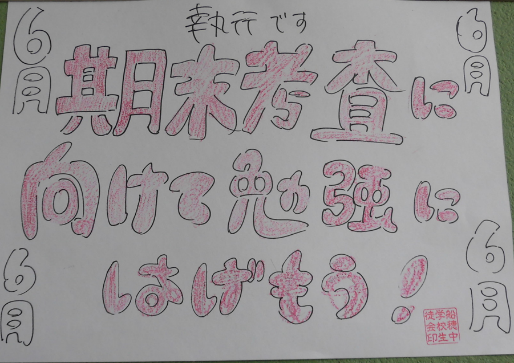 執行です
6月
6月
期末考査に
向けて勉強に
はげもう!
6月
6月
船穂中
学校生
徒会印